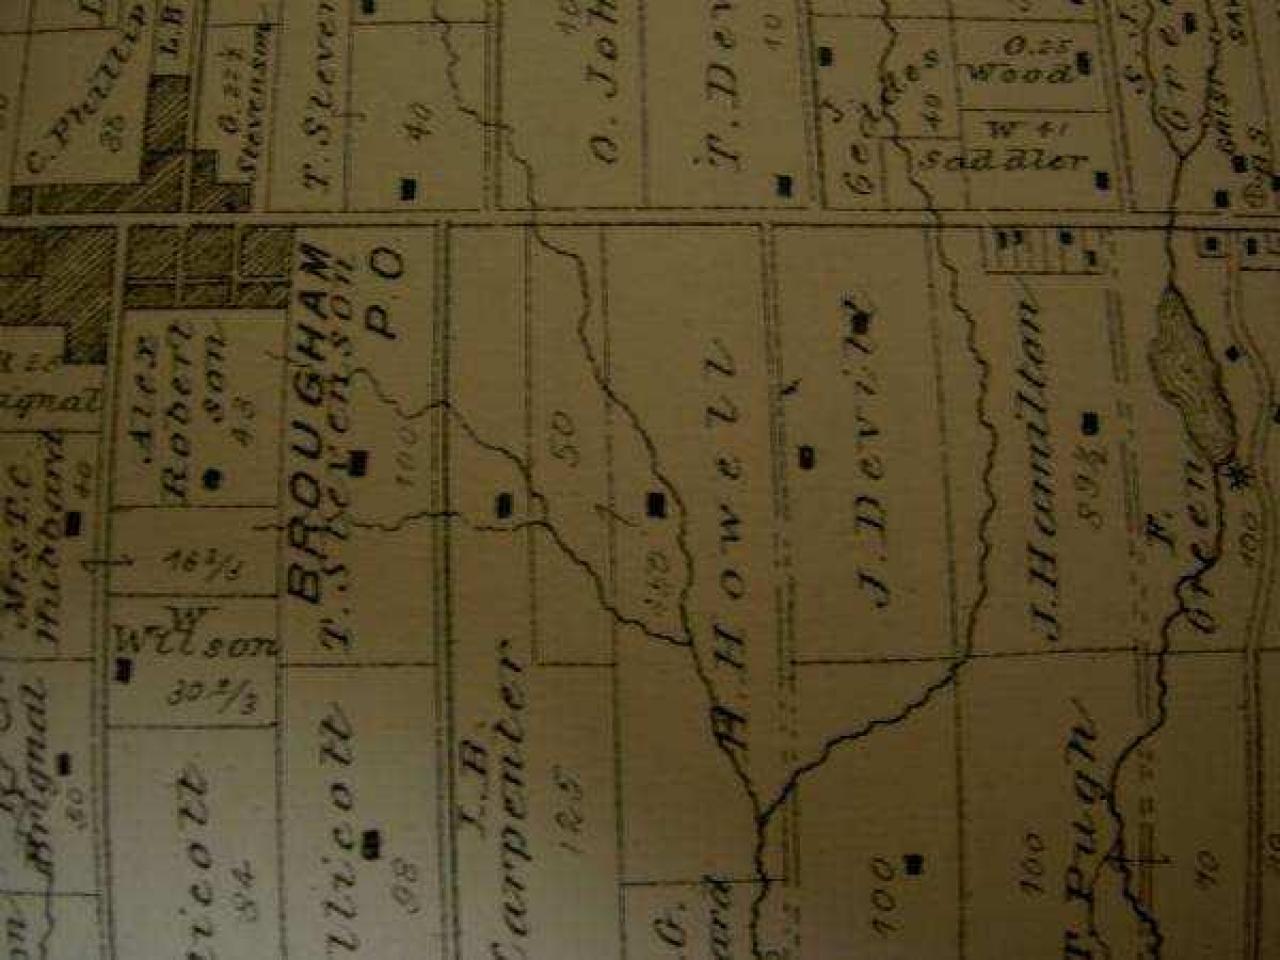 C. Phillip
L.B
0.22½
Stevenson
T. Steven
40
O. Joh
T. Dev
10
Geo
40
0.25
Wood
W 41
Saddler
Gree
BROUGHAM
P.O
T. Stevenson
100
Alex
Robert
son
43
Mrs T.C
Hubbard
40
16⅔
W
Willson
30⅔
50
A. Howell
J. Devitt
J. Hamilton
89½
F.
Green
100
Bignal
50
icott
84
llicott
98
I.B
Carpenter
125
G.
ard
100
100
T Pugh